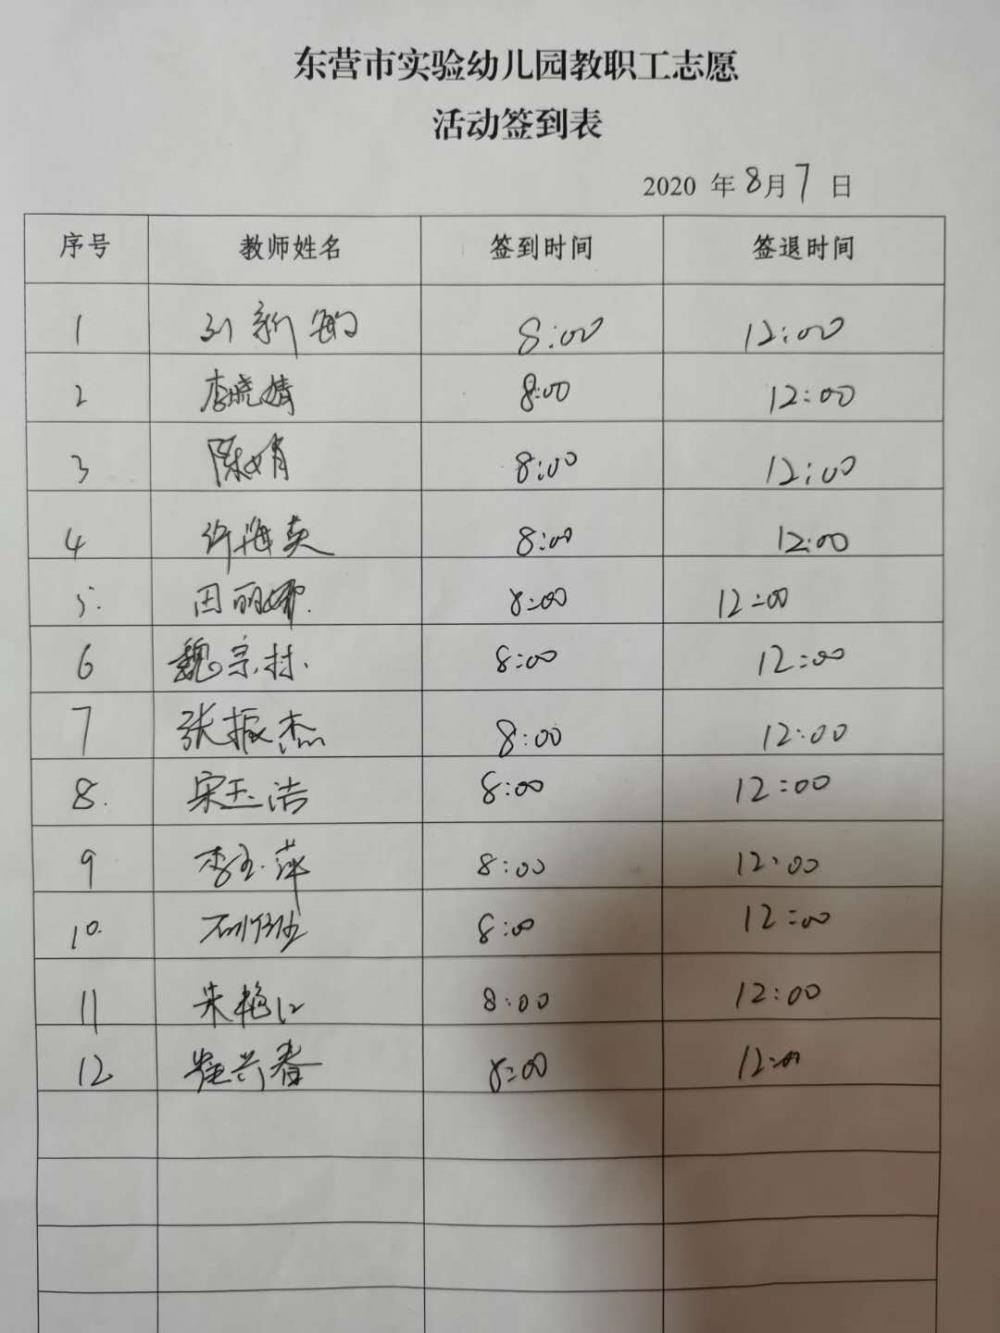 东营市实验幼儿园教职工志愿
活动签到表
2020 年 8月 7 日
序号 教师姓名 签到时间 签退时间
1 8:00 12:00
2 李晓婧 8:00 12:00
3 陈娟 8:00 12:00
4 许海英 8:00 12:00
5. 田丽娜. 8:00 12:00
6 魏宗村. 8:00 12:00
7 张振杰 8:00 12:00
8. 宋玉洁 8:00 12:00
9 李玉萍 8:00 12:00
10. 8:00 12:00
11 朱艳江 8:00 12:00
12 崔兴春 8:00 12:00